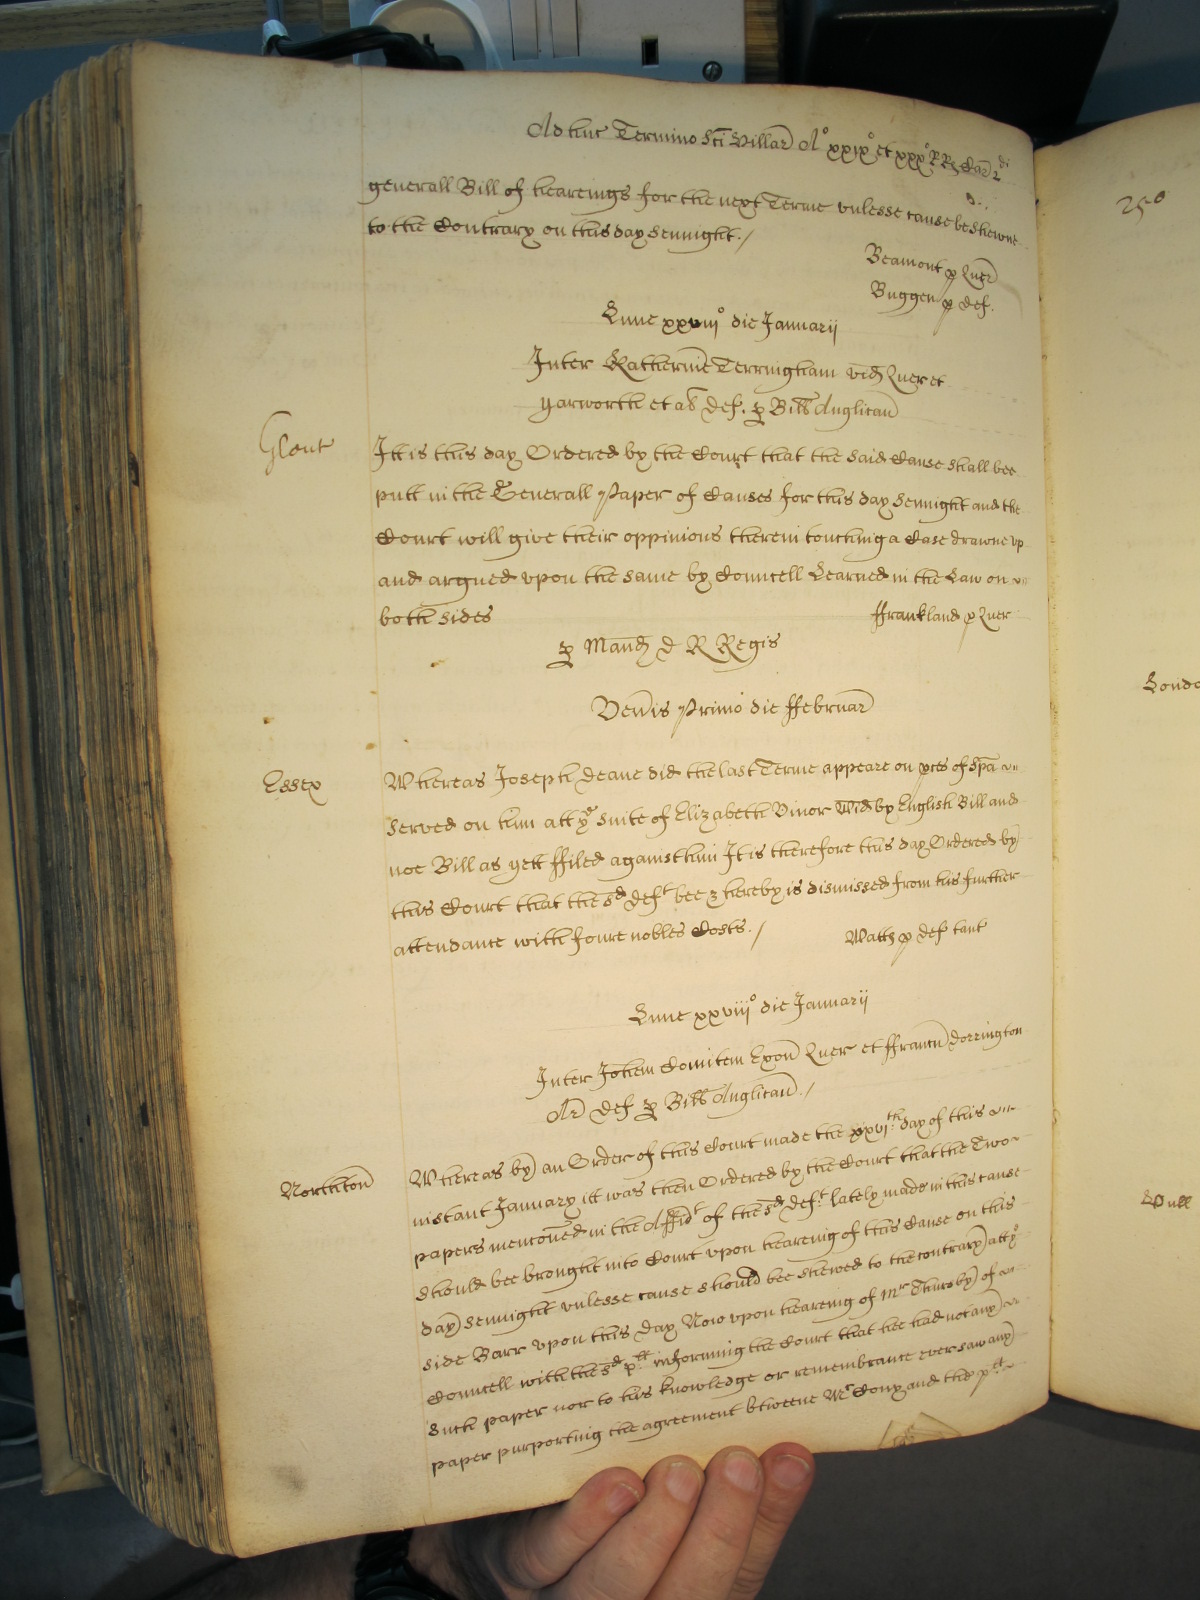 Adhuc Termino Sci Hillar Ao xxixo et xxxo RRs Car 2di
generall Bill of heareings for the next Terme unlesse cause be shewne
to the Contrary on this day Sennight./
Beamont p Quer
Buggen p Def.
Lune xxviiio die Januarii
Inter Katherine Terringham vid Quer et
Yarworth et al Def. p Bill Anglican
Glouc
Itt is this day Ordered by the Court that the said Cause shall bee
putt in the Generall Paper of Causes for this day Sennight and the
Court will give their oppinions therein touching a Case drawne up
and argued upon the same by Councell Learned in the Law on
both sides
ffrankland p Quer
p Mand d R Regis
Venis Primo die ffebruar
Essex
Whereas Joseph Deane did the last Terme appeare on pces of Spa
served on him att ye Suite of Elizabeth Vinor Wid by English Bill and
noe Bill as yett ffiled against him It is therefore this day Ordered by
this Court that the sd Deft bee & hereby is dismissed from his further
attendance with foure nobles Costs./
Watts p Def tant
Lune xxviiio die Januarii
Inter Johem Comitem Exon Quer et ffrancu Dorrington
Ar Def p Bill Anglican./
Northton
Whereas by an Order of this Court made the xxvith day of this
instant January itt was then Ordered by the Court that the Two
papers menconed in the Affidt of the sd Deft lately made in this cause
should bee brought into Court upon heareing of this Cause on this
day Sennight unlesse cause should bee shewed to the contrary att ye
side Barr upon this day Now upon heareing of Mr Thursby of
Councell with the sd plt informing the Court that hee had not any
such paper nor to his knowledge or remembrance ever saw any
paper purporting the agreement betweene Mr Cony and the plt
250
Londo
Hull